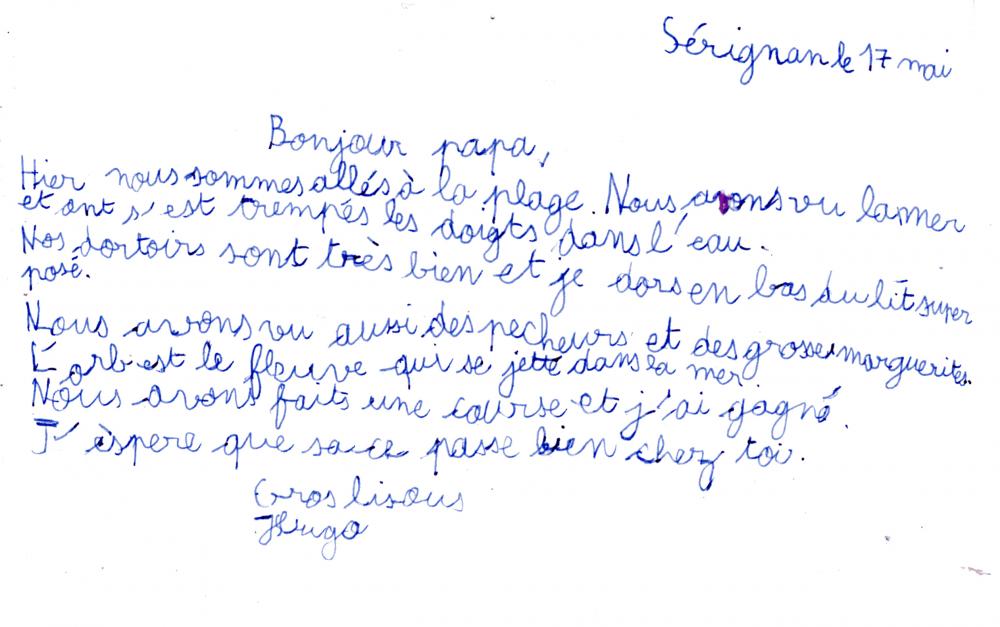 Sérignan le 17 mai
Bonjour papa,
Hier nous sommes allés à la plage. Nous avons vu la mer
et ont s'est trempés les doigts dans l'eau.
Nos dortoirs sont très bien et je dors en bas du lit super
posé.
Nous avons vu aussi des pecheurs et des grosses marguerites.
L'orb est le fleuve qui se jette dans la mer
Nous avons faits une course et j'ai gagné.
J'èspere que sa ce passe bien chez toi.
Gros bisous
Hugo